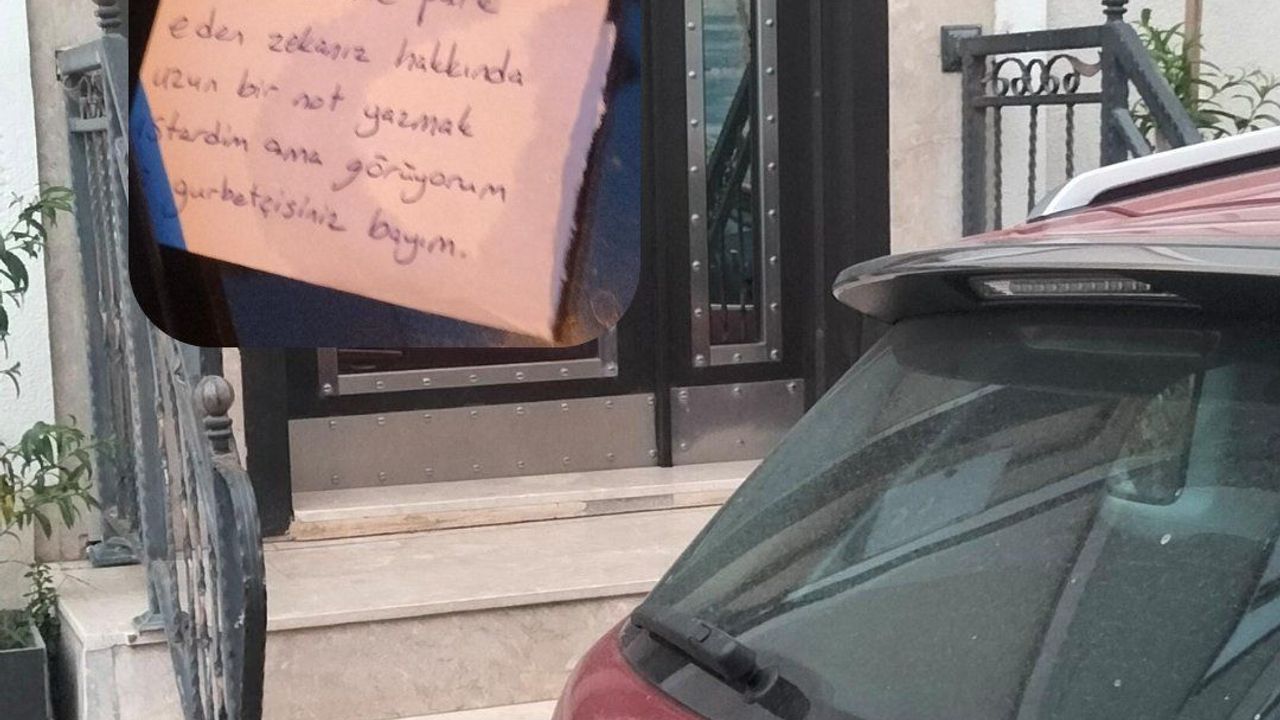 eden zekanız hakkında
uzun bir not yazmak
isterdim ama görüyorum
gurbetçisiniz bayım.